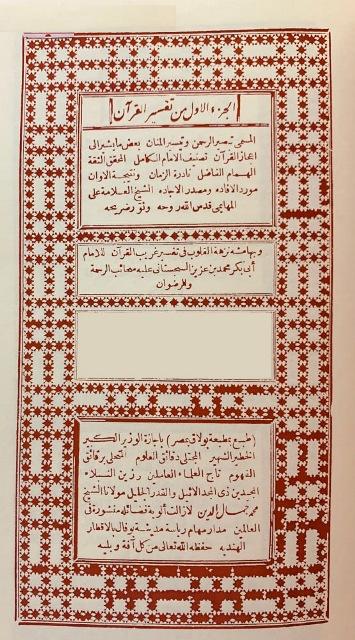 الجزء الاول من تفسير القرآن
المسمى تبصير الرحمن وتيسير المنان بعض ما يشير الى
اعجاز القرآن تصنيف الامام الكامل المحقق الثقة
الهمام الفاضل نادرة الزمان ونتيجة الاوان
مورد الافاده ومصدر الاجاده الشيخ العلامة على
المهايمى قدس الله روحه ونور ضريحه
وبهامشه نزهة القلوب فى تفسير غريب القرآن للامام
أبى بكر محمد بن عزيز السجستانى عليه سحائب الرحمة
والرضوان
(طبع بمطبعة بولاق بمصر) باجازة الوزير الكبير
الخطير الشهير المجتلى دقائق العلوم المتحلى برقائق
الفهوم تاج العلماء العاملين رزين النبلاء
المجيدين ذى المجد الاثيل والقدر الجليل مولانا الشيخ
محمد جمال الدين لازالت ألوية فضائله منشورة فى
العالمين مدار مهام رياسة مدينة بوفال بالاقطار
الهنديه حفظه الله تعالى من كل آفة وبليه